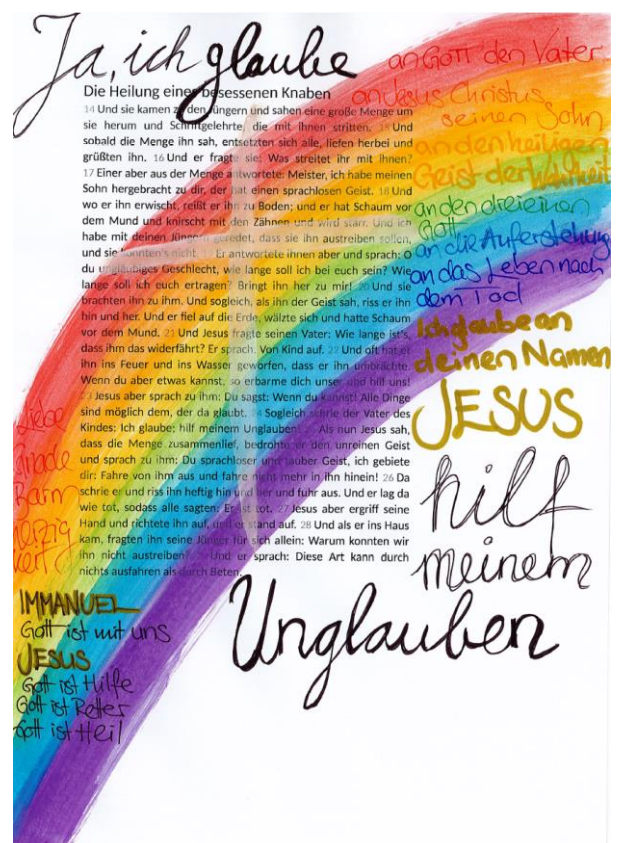 Ja, ich glaube
an Gott den Vater
an Jesus Christus
seinen Sohn
an den heiligen
Geist der Wahrheit
an den dreieinen
Gott
an die Auferstehung
an das Leben nach
dem Tod
Ich glaube an
deinen Namen
JESUS
hilf
meinem
Unglauben
Die Heilung eines besessenen Knaben
14 Und sie kamen zu den Jüngern und sahen eine große Menge um
sie herum und Schriftgelehrte, die mit ihnen stritten. 15 Und
sobald die Menge ihn sah, entsetzten sich alle, liefen herbei und
grüßten ihn. 16 Und er fragte sie: Was streitet ihr mit ihnen?
17 Einer aber aus der Menge antwortete: Meister, ich habe meinen
Sohn hergebracht zu dir, der hat einen sprachlosen Geist. 18 Und
wo er ihn erwischt, reißt er ihn zu Boden; und er hat Schaum vor
dem Mund und knirscht mit den Zähnen und wird starr. Und ich
habe mit deinen Jüngern geredet, dass sie ihn austreiben sollen,
und sie konnten's nicht. 19 Er antwortete ihnen aber und sprach: O
du ungläubiges Geschlecht, wie lange soll ich bei euch sein? Wie
lange soll ich euch ertragen? Bringt ihn her zu mir! 20 Und sie
brachten ihn zu ihm. Und sogleich, als ihn der Geist sah, riss er ihn
hin und her. Und er fiel auf die Erde, wälzte sich und hatte Schaum
vor dem Mund. 21 Und Jesus fragte seinen Vater: Wie lange ist's,
dass ihm das widerfährt? Er sprach: Von Kind auf. 22 Und oft hat er
ihn ins Feuer und ins Wasser geworfen, dass er ihn umbrächte.
Wenn du aber etwas kannst, so erbarme dich unser und hilf uns!
23 Jesus aber sprach zu ihm: Du sagst: Wenn du kannst! Alle Dinge
sind möglich dem, der da glaubt. 24 Sogleich schrie der Vater des
Kindes: Ich glaube; hilf meinem Unglauben! 25 Als nun Jesus sah,
dass die Menge zusammenlief, bedrohte er den unreinen Geist
und sprach zu ihm: Du sprachloser und tauber Geist, ich gebiete
dir: Fahre von ihm aus und fahre nicht mehr in ihn hinein! 26 Da
schrie er und riss ihn heftig hin und her und fuhr aus. Und er lag da
wie tot, sodass alle sagten: Er ist tot. 27 Jesus aber ergriff seine
Hand und richtete ihn auf, und er stand auf. 28 Und als er ins Haus
kam, fragten ihn seine Jünger für sich allein: Warum konnten wir
ihn nicht austreiben? 29 Und er sprach: Diese Art kann durch
nichts ausfahren als durch Beten.
Liebe
Gnade
Barm
herzig
keit
IMMANUEL
Gott ist mit uns
JESUS
Gott ist Hilfe
Gott ist Retter
Gott ist Heil